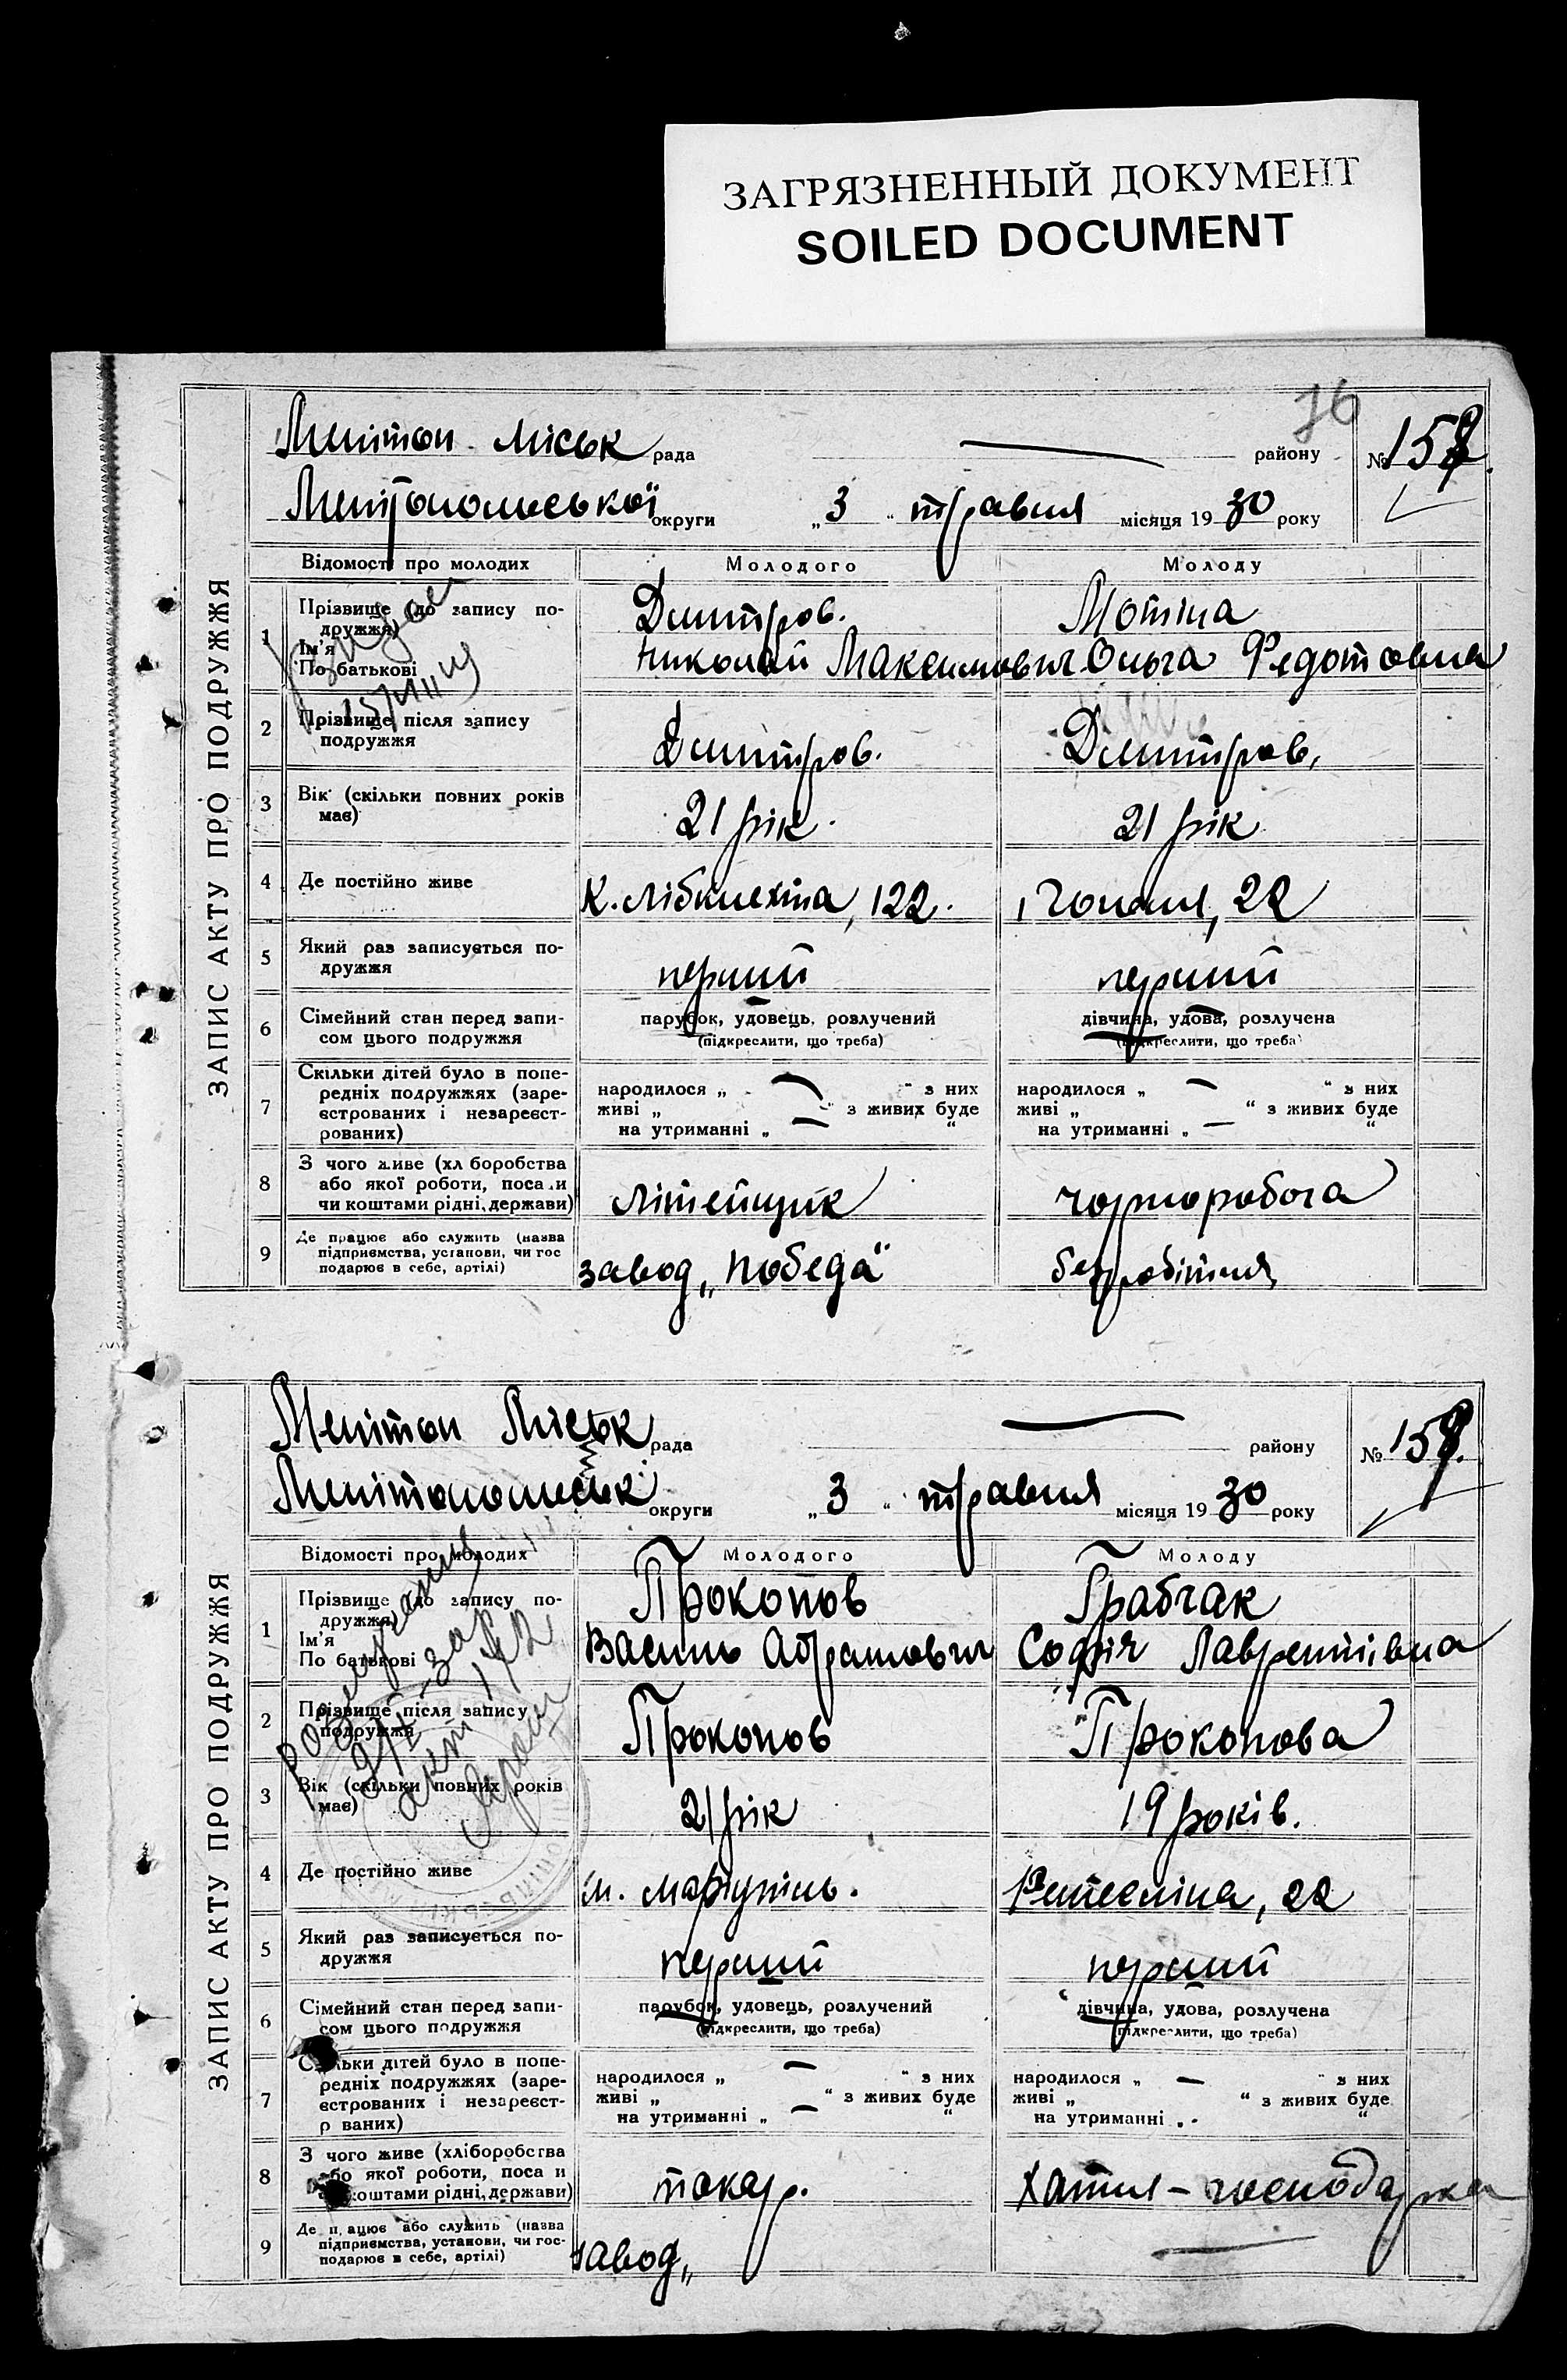 ЗАГРЯЗНЕННЫЙ ДОКУМЕНТ
SOILED DOCUMENT
76
ЗАПИС АКТУ ПРО ПОДРУЖЖЯ
Мелітоп. міськ рада — району №
Мелітопольської округи „3“ травня місяця 1930 року
Відомості про молодих Молодого Молоду
1 Прізвище (до запису по-
дружжя)
Ім'я
По батькові
Дмитров. Мотіна
Николай Максимович Ольга Федотовна
2 Прізвище після запису
подружжя
Дмитров. Дмитров.
3 Вік (скільки повних років
має)
21 рік. 21 рік
4 Де постійно живе
К. Лібкнехта, 122. Гоголя, 22
5 Який раз записується по-
дружжя
перший перший
6 Сімейний стан перед запи-
сом цього подружжя
парубок, удовець, розлучений дівчина, удова, розлучена
(підкреслити, що треба) (підкреслити, що треба)
7 Скільки дітей було в попе-
редніх подружжях (заре-
єстрованих і незареєст-
рованих)
народилося „ — “ з них народилося „ — “ з них
живі „ “ з живих буде живі „ “ з живих буде
на утриманні „ — “ на утриманні „ — “
8 З чого живе (хл боробства
або якої роботи, поса и
чи коштами рідні, держави)
літейщик чорноробоча
9 Де працює або служить (назва
підприємства, установи, чи гос
подарює в себе, артілі)
завод „Победа“ безробітня
ЗАПИС АКТУ ПРО ПОДРУЖЖЯ
Мелітоп Міськ рада — району №
Мелітопольськ округи „3“ травня місяця 1930 року
Відомості про молодих Молодого Молоду
1 Прізвище (до запису по-
дружжя)
Ім'я
По батькові
Прокопов Грабчак
Василь Абрамович Софія Лаврентіївна
2 Прізвище після запису
подружжя
Прокопов Прокопова
3 Вік (скільки повних років
має)
21 рік 19 років.
4 Де постійно живе
м. Маріупіль. 22
5 Який раз записується по-
дружжя
перший перший
6 Сімейний стан перед запи-
сом цього подружжя
парубок, удовець, розлучений дівчина, удова, розлучена
(підкреслити, що треба) (підкреслити, що треба)
7 Скільки дітей було в попе-
редніх подружжях (заре-
єстрованих і незареєст-
р ваних)
народилося „ — “ з них народилося „ — “ з них
живі „ “ з живих буде живі „ “ з живих буде
на утриманні „ — “ на утриманні „ - “
8 З чого живе (хліборобства
або якої роботи, поса и
коштами рідні, держави)
токар. хатня - господарка
9 Де п ацює або служить (назва
підприємства, установи, чи гос-
подарює в себе, артілі)
завод „ —